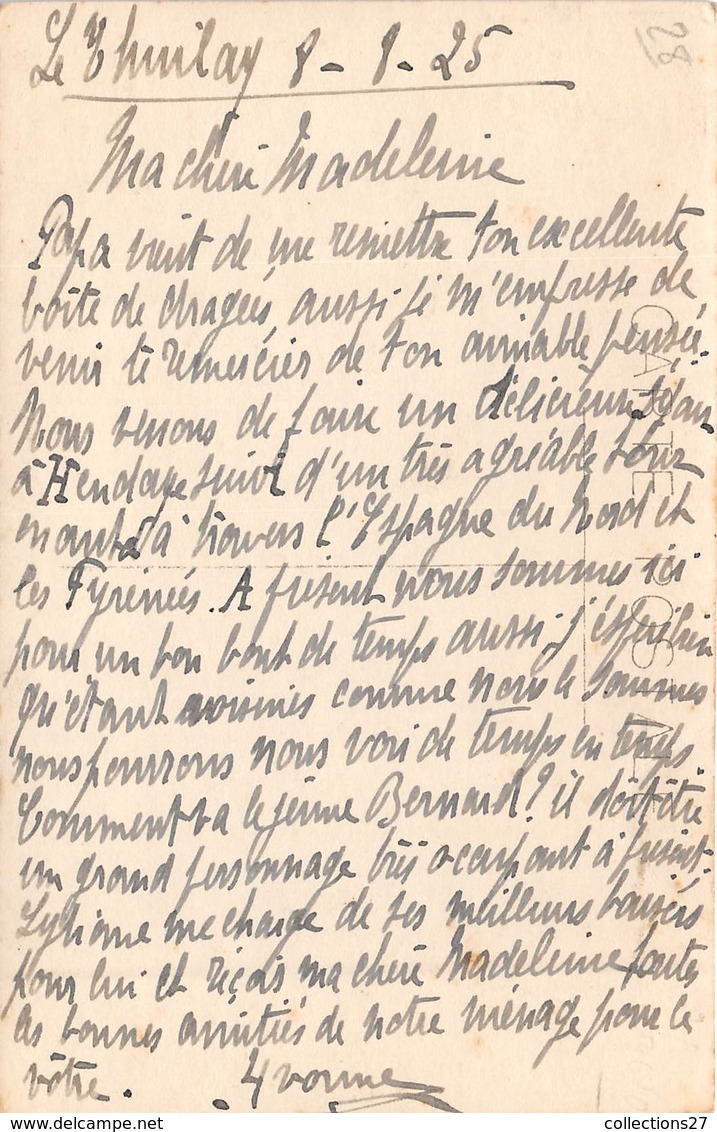 Le Thuilay 8-8-25
28
Ma chère Madeleine
Papa vient de me remettre ton excellente
boîte de dragées, aussi je m'empresse de
venir te remercier de ton aimable pensée.
Nous venons de faire un délicieux séjour
à Hendaye suivi d'un très agréable tour
à travers l'Espagne du Nord et
les Pyrénées. A présent nous sommes ici
pour un bon bout de temps aussi j'espère bien
qu'étant voisines comme nous le sommes
nous pourrons nous voir de temps en temps
Comment va le jeune Bernard? il doit être
un grand personnage très occupant à présent.
me charge de ses meilleurs baisers
pour lui et reçois ma chère Madeleine toutes
les bonnes amitiés de notre ménage pour le
vôtre. Yvonne
CARTE POSTALE
collections27